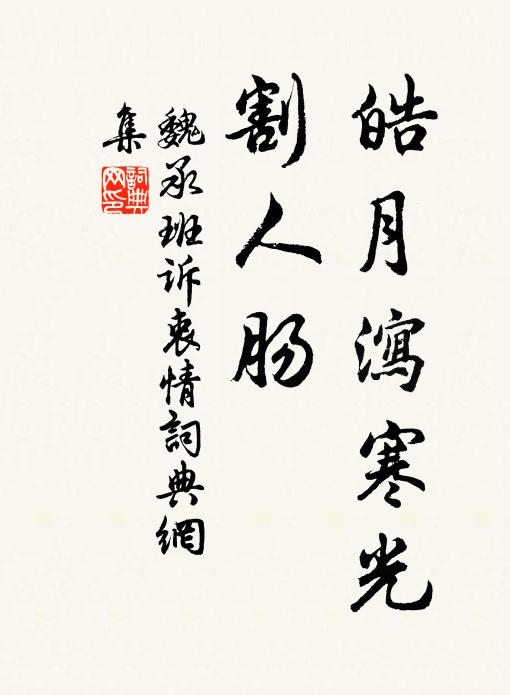 皓月瀉寒光
割人肠
魏承班诉衷情詞典網
集
詞典
网印